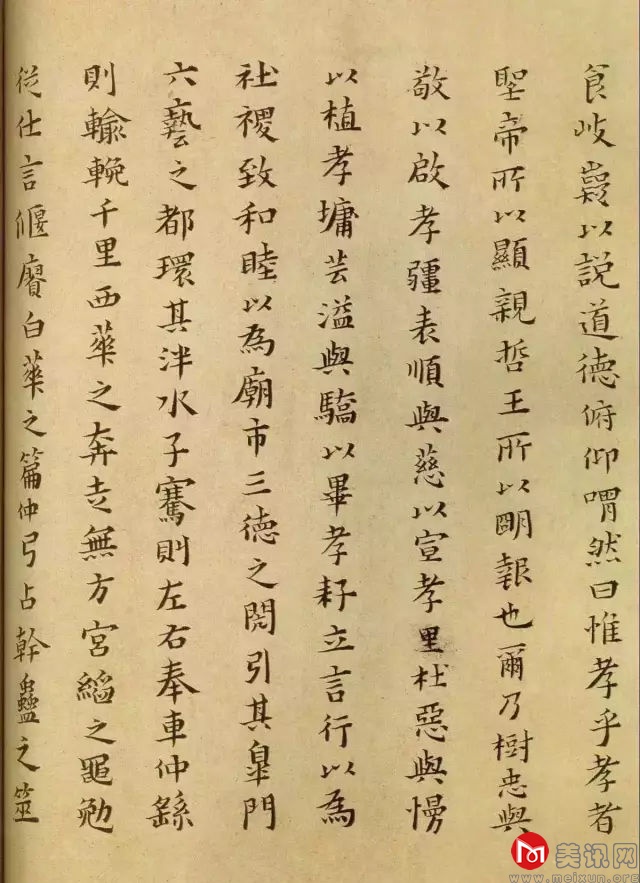 食岐嶷以説道德俯仰喟然曰惟孝乎孝者
聖帝所以顯親哲王所以明報也爾乃樹忠與
敬以啟孝疆表順與慈以宣孝里杜惡與慢
以植孝墉芸溢與驕以畢孝耔立言行以為
社稷致和睦以為廟市三德之閎引其皐門
六藝之都環其泮水子騫則左右奉車仲繇
則輸輓千里西華之奔走無方宮縚之黽勉
從仕言偃賡白華之篇仲弓占幹蠱之筮
美讯网
www.meixun.org